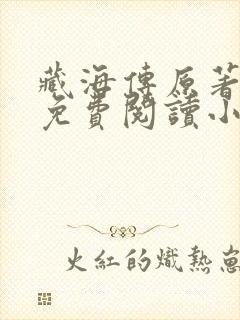 藏海傳原著
免費閱讀小
火紅的熾熱